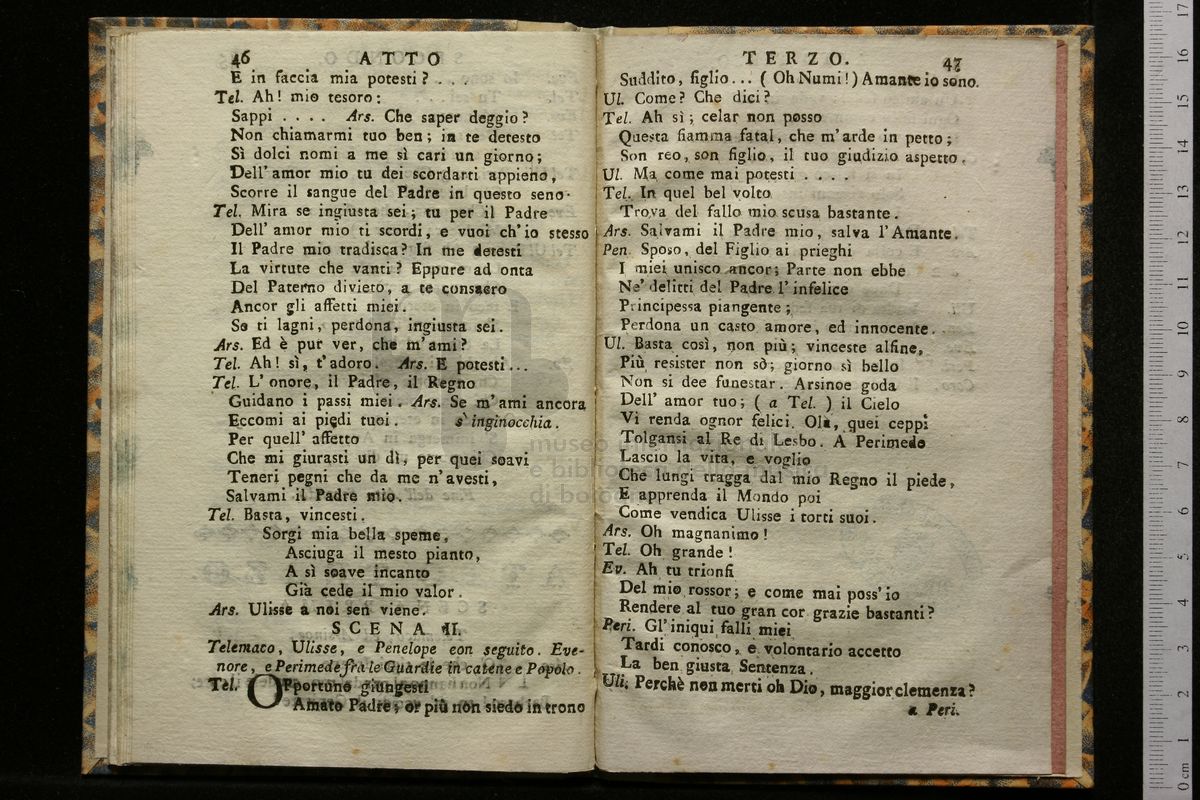 46 ATTO
E in faccia mia potesti? . . .
Tel. Ah! mio tesoro:
Sappi . . . . Ars. Che saper deggio?
Non chiamarmi tuo ben; in te detesto
Sì dolci nomi a me sì cari un giorno;
Dell' amor mio tu dei scordarti appieno,
Scorre il sangue del Padre in questo seno.
Tel. Mira se ingiusta sei; tu per il Padre
Dell' amor mio ti scordi, e vuoi ch'io stesso
Il Padre mio tradisca? In me detesti
La virtute che vanti? Eppure ad onta
Del Paterno divieto, a te consacro
Ancor gli affetti miei.
Se ti lagni, perdona, ingiusta sei.
Ars. Ed è pur ver, che m'ami?
Tel. Ah! sì, t'adoro. Ars. E potesti...
Tel. L' onore, il Padre, il Regno
Guidano i passi miei. Ars. Se m'ami ancora
Eccomi ai piedi tuoi. s'inginocchia.
Per quell' affetto
Che mi giurasti un dì, per quei soavi
Teneri pegni che da me n'avesti,
Salvami il Padre mio.
Tel. Basta, vincesti.
Sorgi mia bella speme,
Asciuga il mesto pianto,
A sì soave incanto
Già cede il mio valor.
Ars. Ulisse a noi sen viene.
SCENA II.
Telemaco, Ulisse, e Penelope con seguito. Eve-
nore, e Perimede frà le Guardie in catene e Popolo.
Tel. Opportuno giungesti
Amato Padre; or più non siedo in trono
TERZO. 47
Suddito, figlio... (Oh Numi!) Amante io sono.
Ul. Come? Che dici?
Tel. Ah sì; celar non posso
Questa fiamma fatal, che m'arde in petto;
Son reo, son figlio, il tuo giudizio aspetto.
Ul. Ma come mai potesti . . . .
Tel. In quel bel volto
Trova del fallo mio scusa bastante.
Ars. Salvami il Padre mio, salva l'Amante.
Pen. Sposo, del Figlio ai prieghi
I miei unisco ancor; Parte non ebbe
Ne' delitti del Padre l'infelice
Principessa piangente;
Perdona un casto amore, ed innocente.
Ul. Basta così, non più; vinceste alfine,
Più resister non sò; giorno sì bello
Non si dee funestar. Arsinoe goda
Dell' amor tuo; ( a Tel. ) il Cielo
Vi renda ognor felici. Olà, quei ceppi
Tolgansi al Re di Lesbo. A Perimede
Lascio la vita, e voglio
Che lungi tragga dal mio Regno il piede,
E apprenda il Mondo poi
Come vendica Ulisse i torti suoi.
Ars. Oh magnanimo!
Tel. Oh grande!
Ev. Ah tu trionfi
Del mio rossor; e come mai poss'io
Rendere al tuo gran cor grazie bastanti?
Peri. Gl'iniqui falli miei
Tardi conosco, e volontario accetto
La ben giusta Sentenza.
Uli. Perchè non merti oh Dio, maggior clemenza?
a Peri.